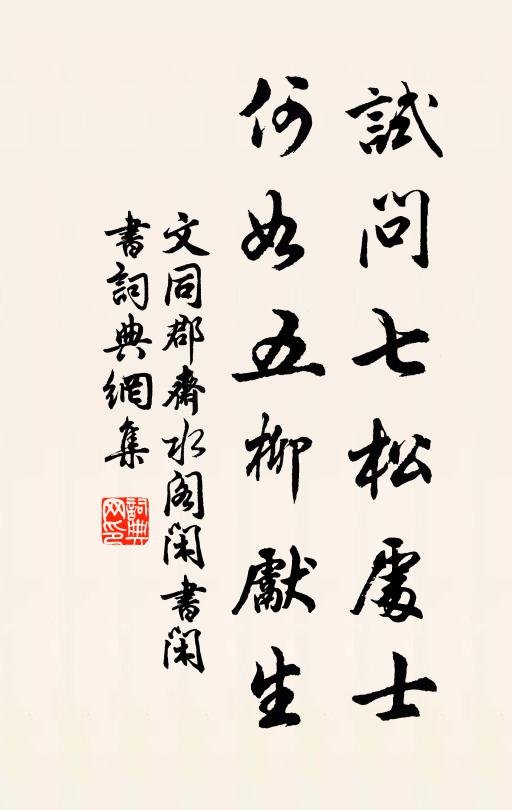 試問七松處士
何如五柳獻生
文同郡齋水閣閑書閑
書詞典網集
詞典
网印